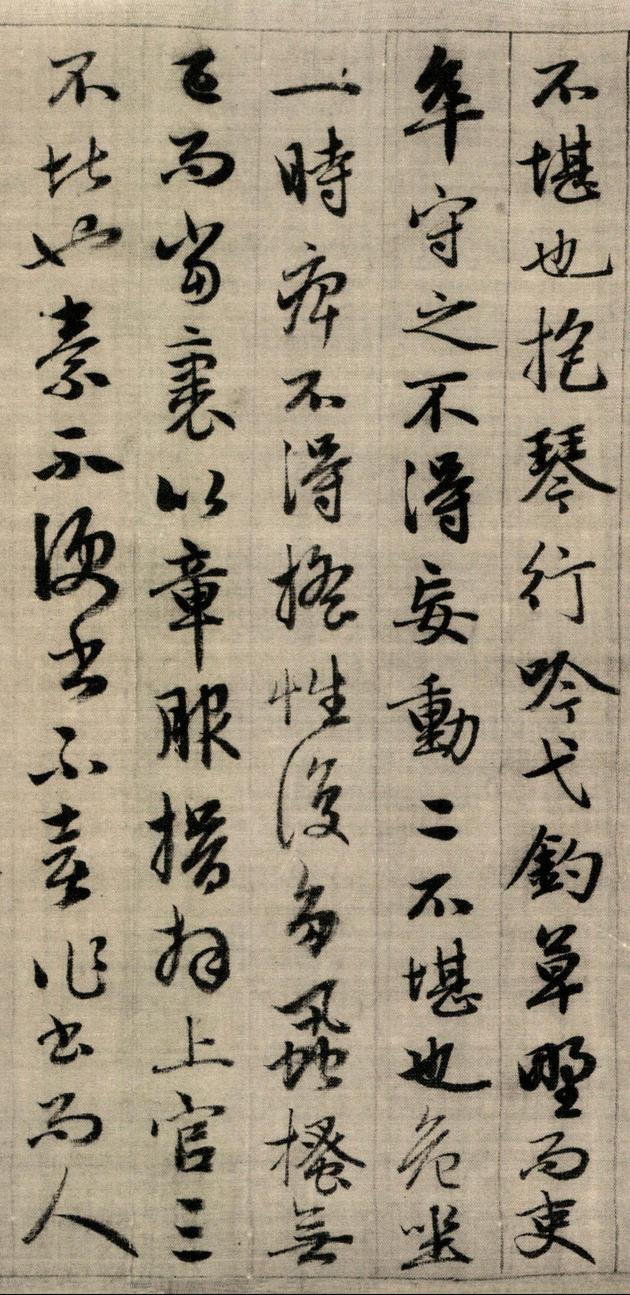 不堪也抱琴行吟弋釣草野而吏
卒守之不得妄動二不堪也危坐
一時痺不得搖性復多虱搔無
已而當裹以章服揖拜上官三
不堪也素不便書不喜作書而人